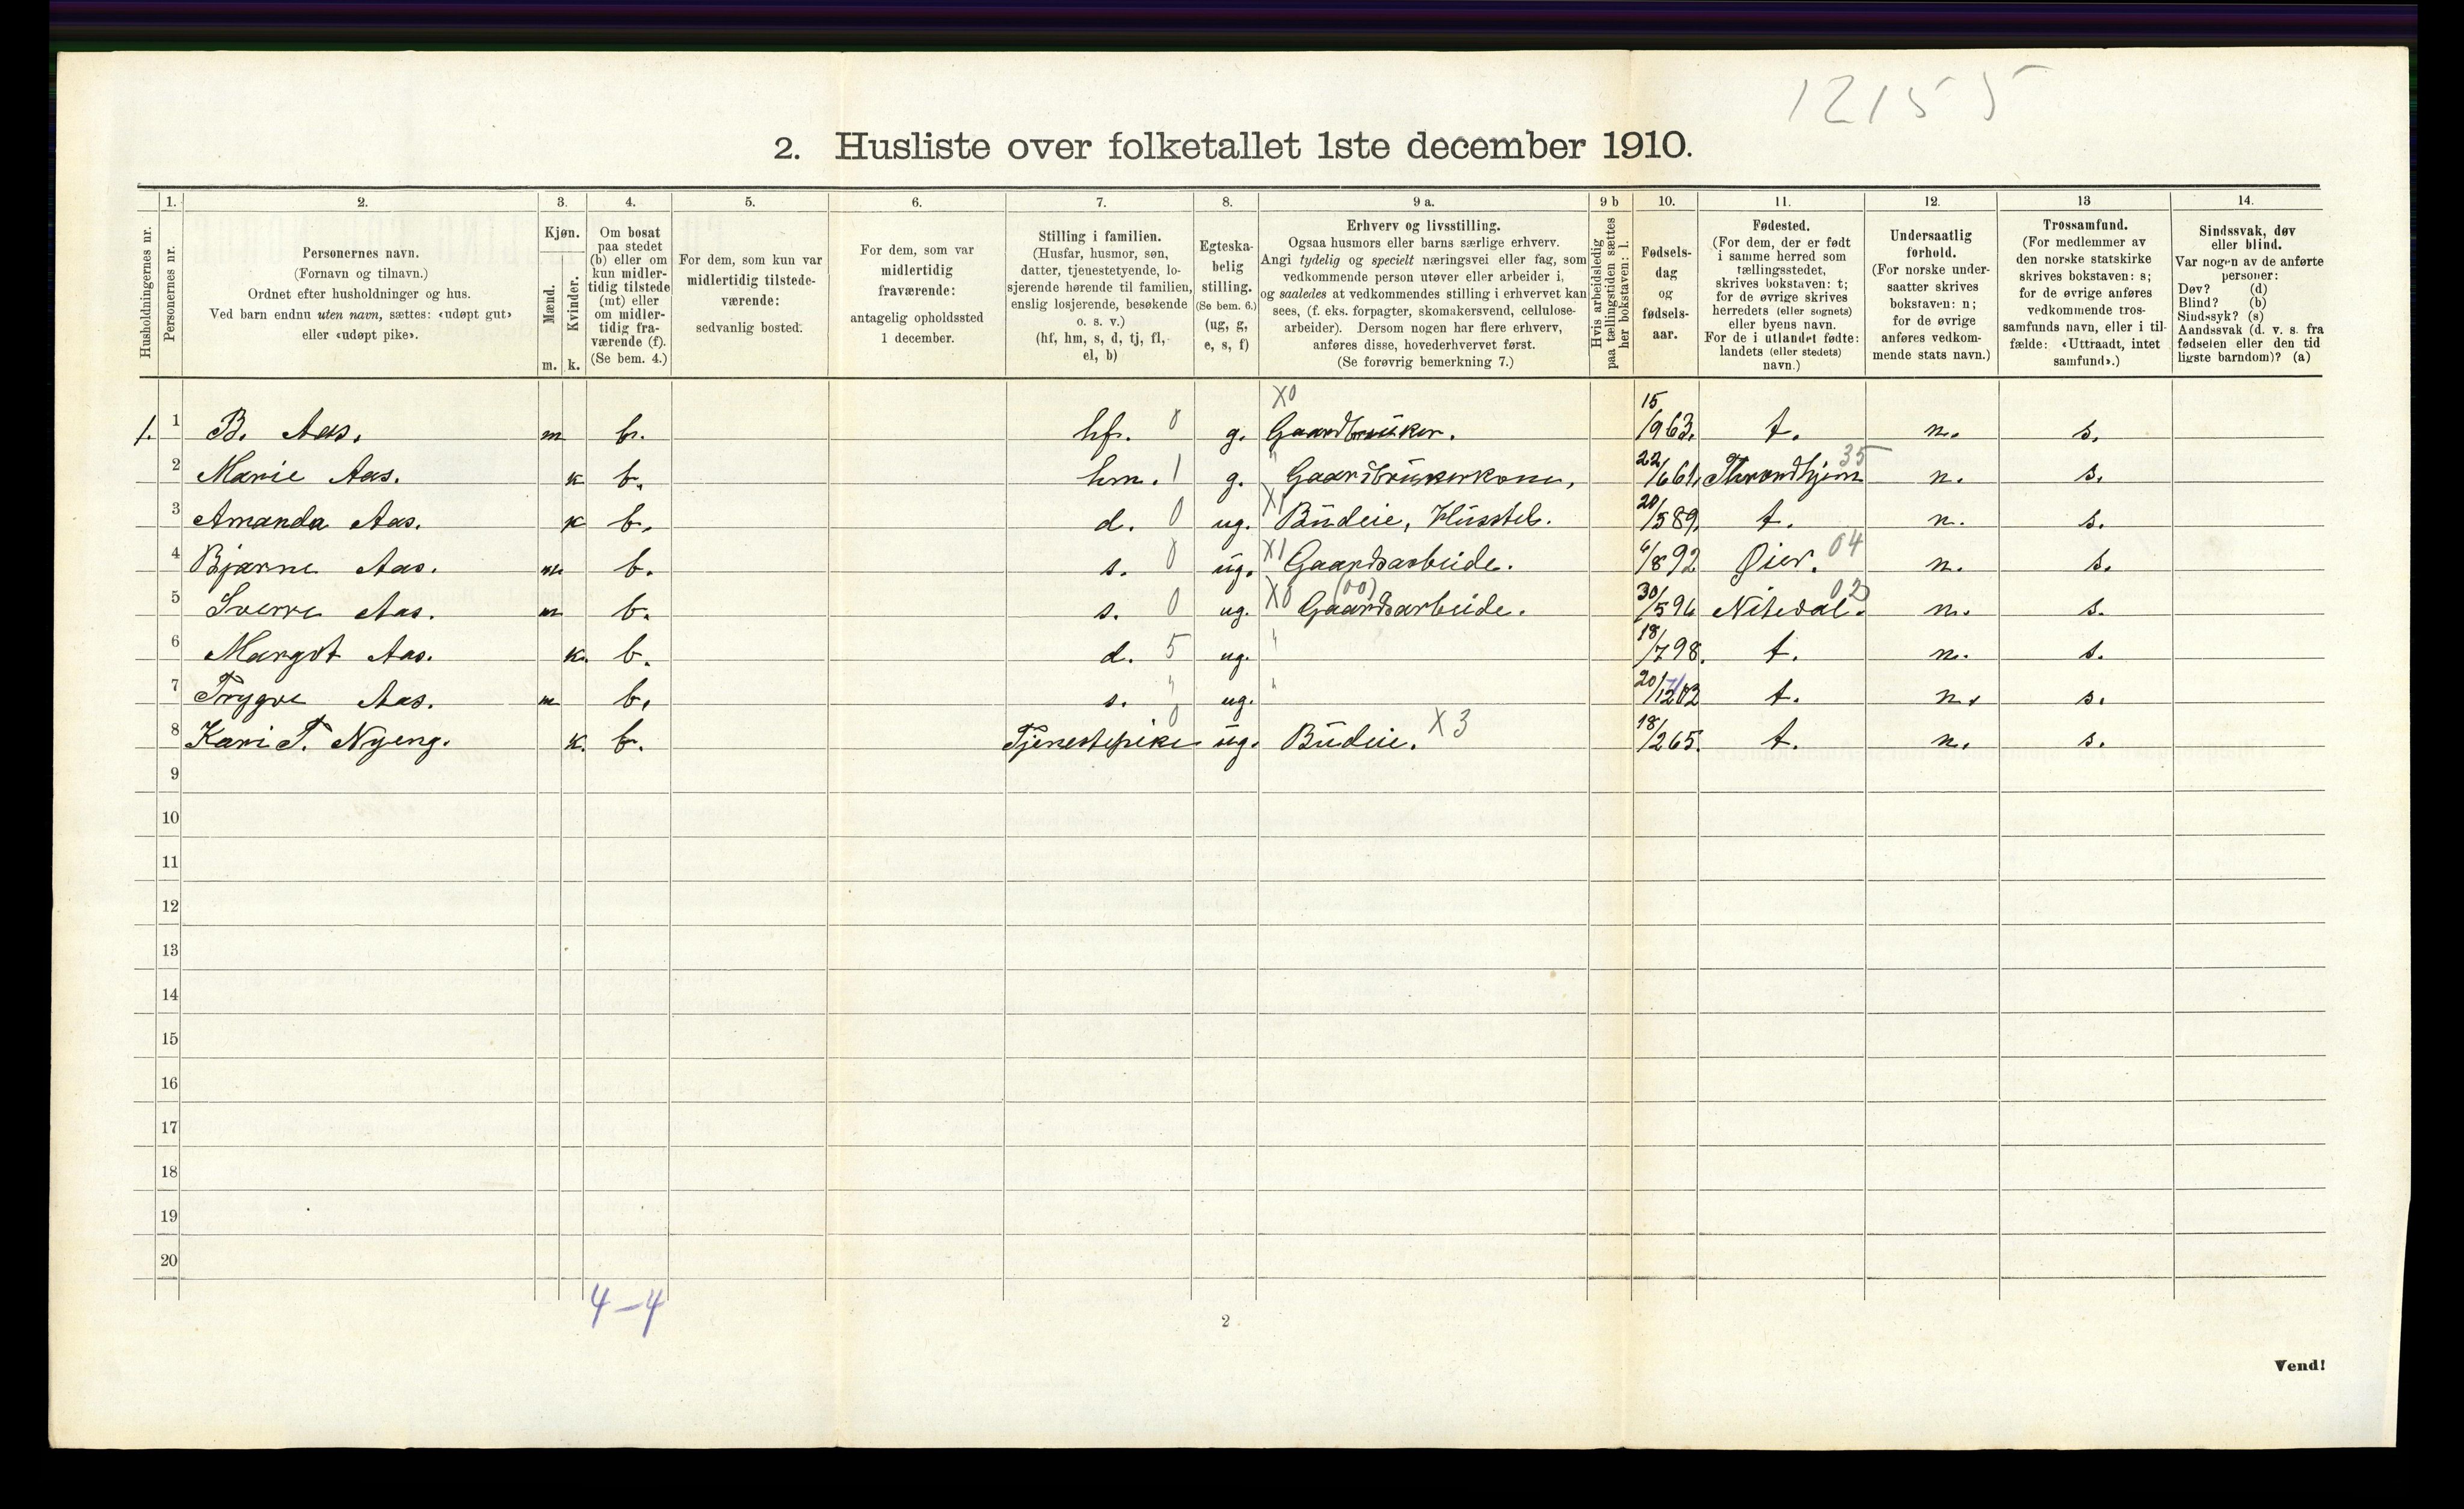 12155
2. Husliste over folketallet 1ste december 1910.
Husholdningernes nr.
1. Personernes nr.
2. Personernes navn. (Fornavn og tilnavn.) Ordnet efter husholdninger og hus. Ved barn endnu uten navn, sættes: «udøpt gut» eller «udøpt pike».
3. Kjøn. Mænd. m. Kvinder. k.
4. Om bosat paa stedet (b) eller om kun midlertidig tilstede (mt) eller om midlertidig fraværende (f). (Se bem. 4.)
5. For dem, som kun var midlertidig tilstedeværende: sedvanlig bosted.
6. For dem, som var midlertidig fraværende: antagelig opholdssted 1 december.
7. Stilling i familien. (Husfar, husmor, søn, datter, tjenestetyende, losjerende hørende til familien, enslig losjerende, besøkende o. s. v.) (hf, hm, s, d, tj, fl, el, b)
8. Egteskabelig stilling. (Se bem. 6.) (ug, g, e, s, f)
9 a. Erhverv og livsstilling. Ogsaa husmors eller barns særlige erhverv. Angi tydelig og specielt næringsvei eller fag, som vedkommende person utøver eller arbeider i, og saaledes at vedkommendes stilling i erhvervet kan sees, (f. eks. forpagter, skomakersvend, cellulosearbeider). Dersom nogen har flere erhverv, anføres disse, hovederhvervet først. (Se forøvrig bemerkning 7.)
9 b Hvis arbeidsledig paa tællingstiden sættes her bokstaven: l.
10. Fødselsdag og fødselsaar.
11. Fødested. (For dem, der er født i samme herred som tællingsstedet, skrives bokstaven: t; for de øvrige skrives herredets (eller sognets) eller byens navn. For de i utlandet fødte: landets (eller stedets) navn.)
12. Undersaatlig forhold. (For norske undersaatter skrives bokstaven: n; for de øvrige anføres vedkommende stats navn.)
13 Trossamfund. (For medlemmer av den norske statskirke skrives bokstaven: s; for de øvrige anføres vedkommende trossamfunds navn, eller i tilfælde: «Uttraadt, intet samfund».)
14. Sindssvak, døv eller blind. Var nogen av de anførte personer: Døv? (d) Blind? (b) Sindssyk? (s) Aandssvak (d. v. s. fra fødselen eller den tid ligste barndom)? (a)
1. 1 B. Aas. m b. hf. 0 g. X0 Gaardbruker. 15/9 63. t. n. s.
2 Marie Aas. k b. hm. 1 g. " Gaardbrukerkone, 22/6 61. Throndhjem 35 n. s.
3 Amanda Aas. k b. d. 0 ug. X1 Budeie, Husstel. 20/5 89. t. n. s.
4 Bjarne Aas. m b. s. 0 ug. X1 Gaardsarbeide. 6/8 92 Øier. 04 n. s.
5 Sverre Aas. m b. s. 0 ug. X0 (00) Gaardsarbeide. 30/5 96 Nitedal. 02 n. s.
6 Margot Aas. k. b. d. 5 ug. " 18/7 98. t. n. s.
7 Trygve Aas. m b. s. " ug. " 20/12 03 t. n. s.
8 Kari T. Nyeng. k. b. Tjenestepike 0 ug. Budeie. X3 18/2 65. t. n. s.
9
10
11
12
13
14
15
16
17
18
19
20
4-4
2
Vend!